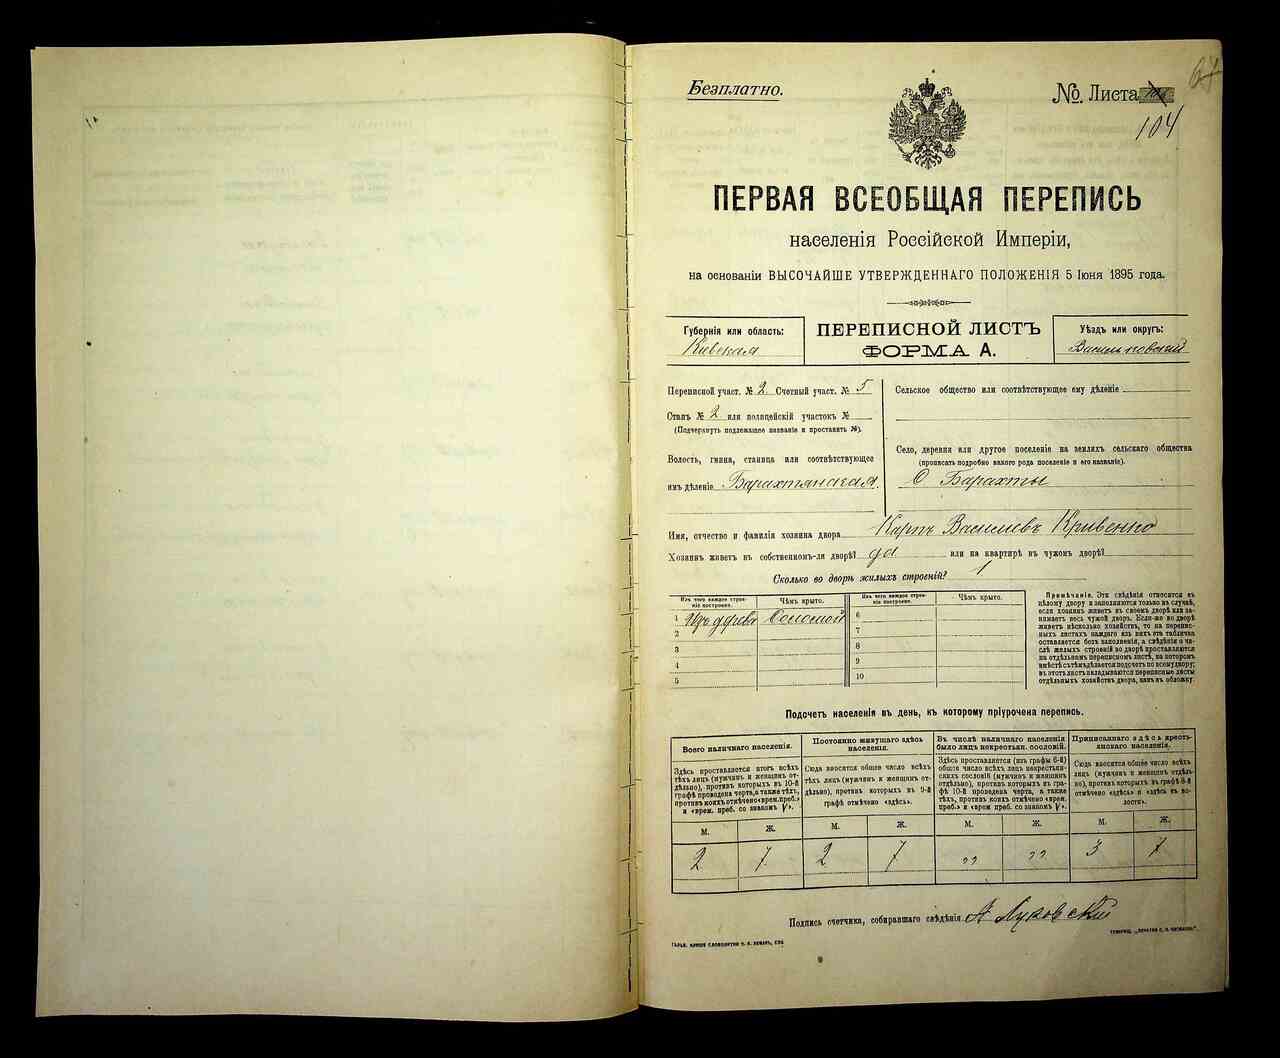 67
Безплатно.
№ Листа
104
ПЕРВАЯ ВСЕОБЩАЯ ПЕРЕПИСЬ
населенія Россійской Имперіи,
на основаніи ВЫСОЧАЙШЕ УТВЕРЖДЕННАГО ПОЛОЖЕНІЯ 5 Іюня 1895 года.
Губернія или область:
Кіевская
ПЕРЕПИСНОЙ ЛИСТЪ
ФОРМА А.
Уѣздъ или округъ:
Васильковскій
Переписной участ. № 2. Счетный участ. № 5
Станъ № 2 или полицейскій участокъ №
(Подчеркнуть подлежащее названіе и проставить №).
Волость, гмина, станица или соотвѣтствующее
имъ дѣленіе Барахтянская.
Сельское общество или соотвѣтствующее ему дѣленіе
Село, деревня или другое поселеніе на земляхъ сельскаго общества
(прописать подробно какого рода поселеніе и его названіе).
С Барахты
Имя, отчество и фамилія хозяина двора Карпъ Василиевъ Кривенко
Хозяинъ живетъ въ собственномъ-ли дворѣ? да или на квартирѣ въ чужомъ дворѣ?
Сколько во дворѣ жилыхъ строеній? 1
Изъ чего каждое строе-
ніе построено.
Чѣмъ крыто.
Изъ чего каждое строе-
ніе построено.
Чѣмъ крыто.
1 Изъ дерева Соломой
2
3
4
5
6
7
8
9
10
Примѣчаніе. Эти свѣдѣнія относятся къ
цѣлому двору и заполняются только въ случаѣ,
если хозяинъ живетъ въ своемъ дворѣ или за-
нимаетъ весь чужой дворъ. Если-же во дворѣ
живетъ нѣсколько хозяйствъ, то на перепис-
ныхъ листахъ каждаго изъ нихъ эта табличка
оставляется безъ заполненія, а свѣдѣнія о чи-
слѣ жилыхъ строеній во дворѣ проставляются
на отдѣльномъ переписномъ листѣ, на которомъ
вмѣстѣ съ тѣмъ дѣлается подсчетъ по всему двору;
въ этотъ листъ вкладываются переписные листы
отдѣльныхъ хозяйствъ двора, какъ въ обложку.
Подсчетъ населенія въ день, къ которому пріурочена перепись.
Всего наличнаго населенія.
Здѣсь проставляется итогъ всѣхъ
тѣхъ лицъ (мужчинъ и женщинъ от-
дѣльно), противъ которыхъ въ 10-й
графѣ проведена черта, а также тѣхъ,
противъ коихъ отмѣчено «врем. преб.»
и «врем. преб. со знакомъ V».
Постоянно живущаго здѣсь
населенія.
Сюда вносится общее число всѣхъ
тѣхъ лицъ (мужчинъ и женщинъ от-
дѣльно), противъ которыхъ въ 9-й
графѣ отмѣчено «здѣсь».
Въ числѣ наличнаго населенія
было лицъ некрестьян. сословій.
Здѣсь проставляется (изъ графы 6-й)
общее число всѣхъ лицъ некрестьян-
скихъ сословій (мужчинъ и женщинъ
отдѣльно), противъ которыхъ въ гра-
фѣ 10-й проведена черта, а также
тѣхъ, противъ коихъ отмѣчено «врем.
преб.» и «врем. преб. со знакомъ V».
Приписаннаго здѣсь кресть-
янскаго населенія.
Сюда вносится общее число всѣхъ
лицъ (мужчинъ и женщинъ отдѣль-
но), противъ которыхъ въ графѣ 8-й
отмѣчено «здѣсь» и «здѣсь въ во-
лости».
М. Ж. М. Ж. М. Ж. М. Ж.
2 7 2 7 „ „ 3 7
Подпись счетчика, собиравшаго свѣдѣнія А Луковскій